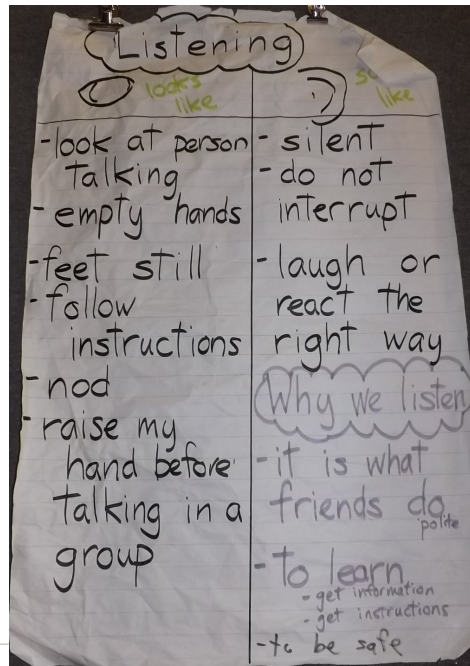 Listening
looks
like
like
-look at person
talking
- empty hands
-feet still
-follow
instructions
-nod
- raise my
hand before
talking in a
group
- silent
- do not
interrupt
- laugh or
react the
right way
Why we listen
-it is what
friends do
polite
-to learn
-get information
-get instructions
-to be safe